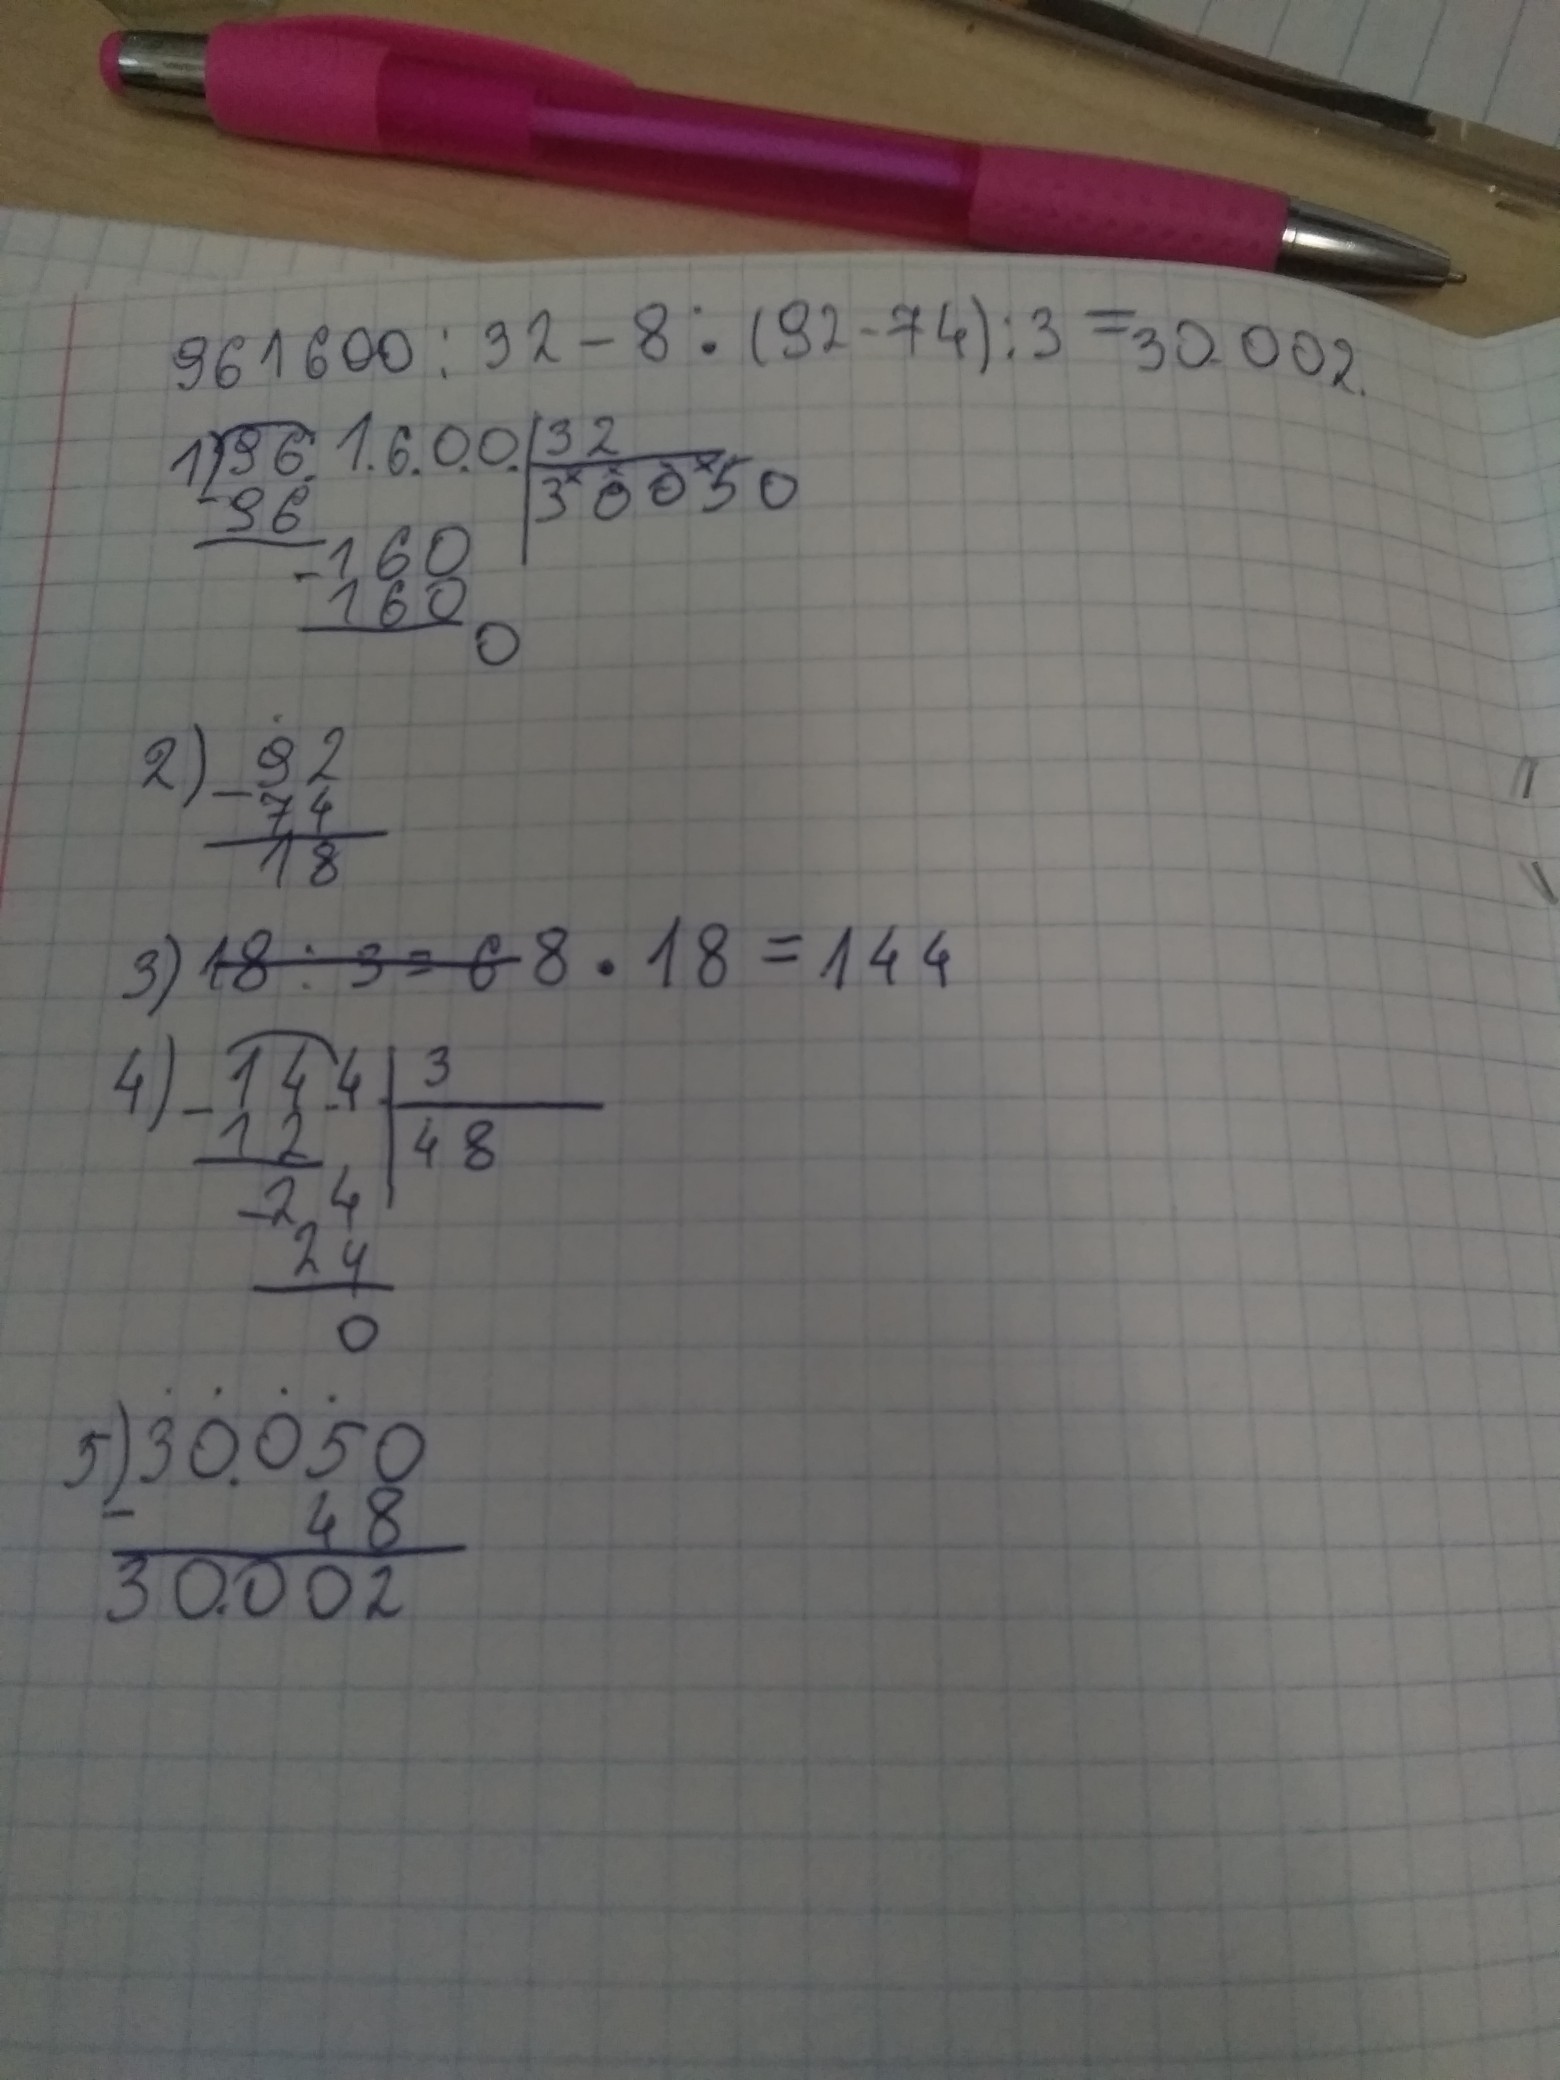 961600 : 32 - 8 · (92-74) : 3 = 30.002.
1) 96.1.6.0.0. 32
- 96 30050
- 160
160
0
2) - 92
74
18
3) 18 : 3 = 6 8 · 18 = 144
4) - 144 3
12 48
- 24
24
0
5) 30.050
- 48
30.002